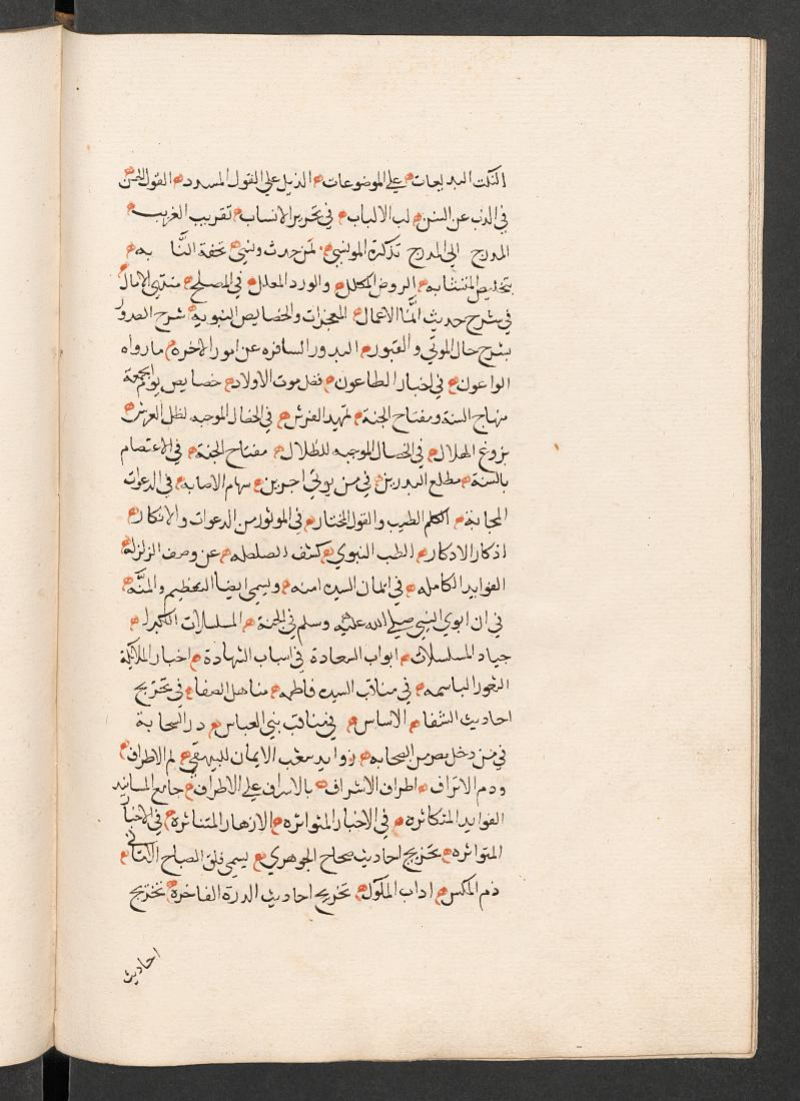 النكت البديعات ه على الموضوعات ه الذيل على القول المسدد ه القول الحسن
في الذب عن السنن ه لب الالباب ه في تحرير الانساب ه تقريب الغريب ه
المدرج الى المدرج تذكرة المؤتسي ه لمن حدث ونسي ه تحفة النا به ه
بتلخيص المتشابه ه الروض المكلل ه والورد المعلل ه في المصطلح ه منتهى الامال
في شرح حديث انما الاعمال ه المعجزات والخصايص النبويه ه شرح الصدور
بشرح حال الموتى و القبور ه البدور السافره عن امور الاخره ه ما رواه
الواعون ه في اخبار الطاعون ه فضل موت الاولاد ه خصايص يوم الجمعة
منهاج السنة ومفتاح الجنة ه تمهيد الفرش ه في الخصال الموجبه لظل العرش ه
بزوغ الهلال ه في الخصال الموجبه للظلال ه مفتاح الجنة ه في الاعتصام
بالسنة ه مطلع البدرين ه في من يوتى اجرين ه سهام الاصابه ه في الدعوات
المجابة ه الكلم الطيب والقول المختار ه في الماثور من الدعوات والاذكار ه
اذكار الاذكار ه الطب النبوي ه كشف الصلصله ه عن وصف الزلزله ه
الفوايد الكامله ه في ايمان السيده امنه ه ويسمى ايضا التعظيم والمنه ه
في ان ابوي النبي صلى الله عليه وسلم في الجنة ه المسلسلات الكبرا ه
جياد المسلسلات ه ابواب السعادة في اسباب الشهادة ه اخبار الملائكة
الثغور الباسمه ه في مناقب السيده فاطمه ه مناهل الصفا ه في تخريج
احاديث الشفا ه الاساس ه في مناقب بني العباس ه در السحابة
في من دخل مصر من الصحابه ه زوايد شعب الايمان للبيهقي ه لم الاطراف ه
وضم الاتراف ه اطراف الاشراف ه بالاشراف على الاطراف ه جامع المسانيد
الفوايد المتكاثره ه في الاخبار المتواتره ه الازهار المتناثره ه في الاخبار
المتواتره ه تخريج احاديث صحاح الجوهري ه يسمى فلق الصباح
ذم المكس ه اداب الملوك ه تخريج احاديث الدرة الفاخرة ه تخريج
احاديث